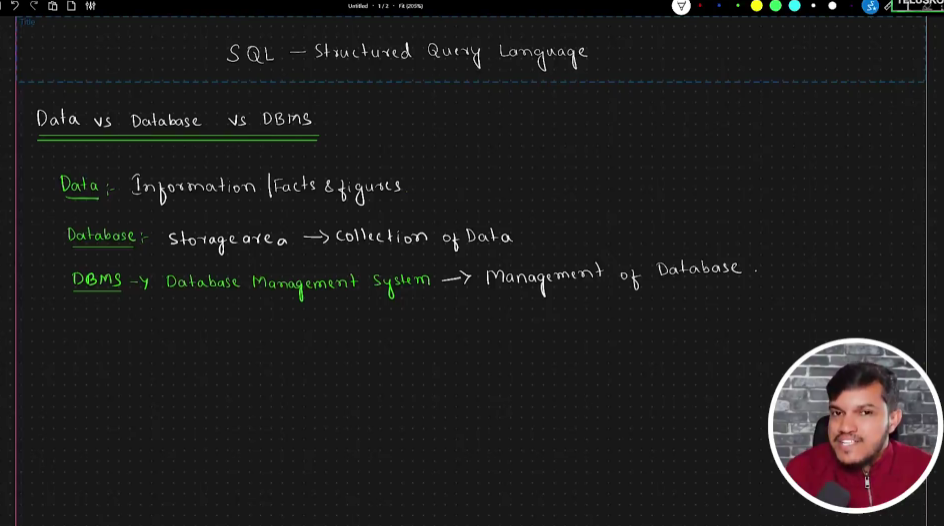 Untitled • 1 / 2 • Fit (205%)
TELUSKO
Title
SQL — Structured Query Language
Data vs Database vs DBMS
Data :- Information / Facts & figures
Database :- Storage area → Collection of Data
DBMS → Database Management System → Management of Database .